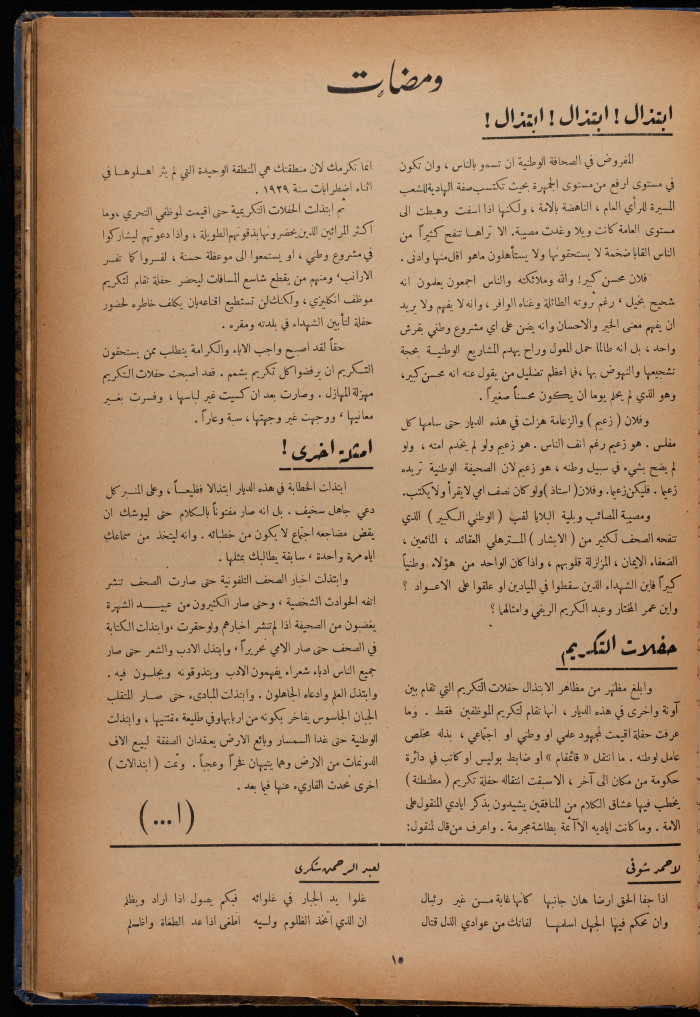 ومضات
ابتذال ! ابتذال ! ابتذال !
المفروض في الصحافة الوطنية ان تسمو بالناس ، وان تكون
في مستوى ارفع من مستوى الجمهرة بحيث تكتسب صفة الهادية للشعب
المسيرة للرأي العام ، الناهضة بالامة ، ولكنها اذا اسفت وهبطت الى
مستوى العامة كانت وبلا وغدت مصيبة. الا تراها تنفح كثيراً من
الناس القابا ضخمة لا يستحقونها ولا يستأهلون ماهو اقل منها وادنى .
فلان محسن كبير! والله وملائكته والناس اجمعون يعلمون انه
شحيح بخيل ، رغم ثروته الطائلة وغناه الوافر ، وانه لا يفهم ولا يريد
ان يفهم معنى الخير والاحسان وانه يضن على اي مشروع وطني بقرش
واحد ، بل انه طالما حمل المعول وراح يهدم المشاريع الوطنية بحجة
تشجيعها والنهوض بها ، فما اعظم تضليل من يقول عنه انه محسن كبير،
وهو الذي لم يحلم يوما ان يكون محسناً صغيراً .
وفلان ( زعيم ) والزعامة هزلت في هذه الديار حتى سامها كل
مفلس . هو زعيم رغم انف الناس . هو زعيم ولو لم يخدم امته ، ولو
لم يضح بشيء في سبيل وطنه ، هو زعيم لان الصحيفة الوطنية تريده
زعيما . فليكن زعيما. وفلان ( استاذ ) ولو كان نصف امي لا يقرأ ولا يكتب.
ومصيبة المصائب وبلية البلايا لقب ( الوطني الكبير ) الذي
تنفحه الصحف لكثير من ( الابشار ) المترهلي العقائد ، المائعين ،
الضعفاء الايمان ، المزلزلة قلوبهم ، واذا كان الواحد من هؤلاء وطنياً
كبيراً فاين الشهداء الذين سقطوا في الميادين او علقوا على الاعواد ؟
واين عمر المختار وعبد الكريم الريفي وامثالهما ؟
حفلات التكريم
وابلغ مظهر من مظاهر الابتذال حفلات التكريم التي تقام بين
آونة واخرى في هذه الديار ، انها تقام لتكريم الموظفين فقط . وما
عرفت حفلة اقيمت لمجهود علمي او وطني او اجتماعي ، بذله مخلص
عامل لوطنه . ما انتقل « قائمقام » او ضابط بوليس او كاتب في دائرة
حكومة من مكان الى آخر ، الا سبقت انتقاله حفلة تكريم ( مطنطنة )
يخطب فيها عشاق الكلام من المنافقين يشيدون بذكر ايادي المنقول على
الامة . وما كانت اياديه الا آثمة بطاشة مجرمة . واعرف من قال لمنقول:
انما نكرمك لان منطقتك هي المنطقة الوحيدة التي لم يثر اهلوها في
اثناء اضطرابات سنة ١٩٢٩ .
ثم ابتذلت الحفلات التكريمية حتى اقيمت لموظفي التحري ، وما
اكثر المرائين الذين يحضرونها بذقونهم الطويلة ، واذا دعوتهم ليشاركوا
في مشروع وطني ، او يستمعوا الى موعظة حسنة ، لفروا كما تفر
الارانب، ومنهم من يقطع شاسع المسافات ليحضر حفلة تقام لتكريم
موظف انكليزي ، ولكنك لن تستطيع اقناعه بان يكلف خاطره لحضور
حفلة لتأبين الشهداء في بلدته ومقره .
حقاً لقد اصبح واجب الاباء والكرامة يتطلب ممن يستحقون
التكريم ان يرفضوا كل تكريم بشمم . فقد اصبحت حفلات التكريم
مهزلة المهازل . وصارت بعد ان كسيت غير لباسها ، وفسرت بغير
معانيها ، ووجهت غير وجهتها ، سبة وعاراً .
امثلة اخرى !
ابتذلت الخطابة في هذه الديار ابتذالا فظيعاً ، وعلى المنبر كل
دعي جاهل سخيف . بل انه صار مفتوناً بالكلام حتى ليوشك ان
يقض مضاجعه اجتماع لا يكون من خطبائه . وانه ليتخذ من سماعك
اياه مرة واحدة ، سابقة يطالبك بمثلها .
وابتذلت اخبار الصحف التلفونية حتى صارت الصحف تنشر
اتفه الحوادث الشخصية ، وحتى صار الكثيرون من عبيد الشهرة
يغضبون من الصحيفة اذا لم تنشر اخبارهم ولو حقرت ، وابتذلت الكتابة
في الصحف حتى صار الامي تحريراً ، وابتذل الادب والشعر حتى صار
جميع الناس ادباء شعراء يفهمون الادب ويتذوقونه ويجلون فيه .
وابتذل العلم وادعاه الجاهلون . وابتذلت المبادىء حتى صار المتقلب
الجبان الجاسوس يفاخر بكونه من اربابها وفي طليعة مقتنيها ، وابتذلت
الوطنية حتى غدا السمسار وبائع الارض يعقدان الصفقة لبيع آلاف
الدونمات من الارض وهما يتيهان فخراً وعجباً . وثمت ( ابتذالات )
اخرى نحدث القاريء عنها فيما بعد .
( ا ... )
لاحمد شوقي
اذا جفا الحق ارضا هان جانبها كأنها غابة من غير رئبال
وان تحكم فيها الجهل اسلمها لفاتك من عوادي الذل قتال
لعبد الرحمن شكري
غلوا يد الجبار في غلوائه فبكم يصول اذا اراد ويظلم
ان الذي اتخذ الظلوم وليه اطغى اذا عد الطغاة واظلم
١٥